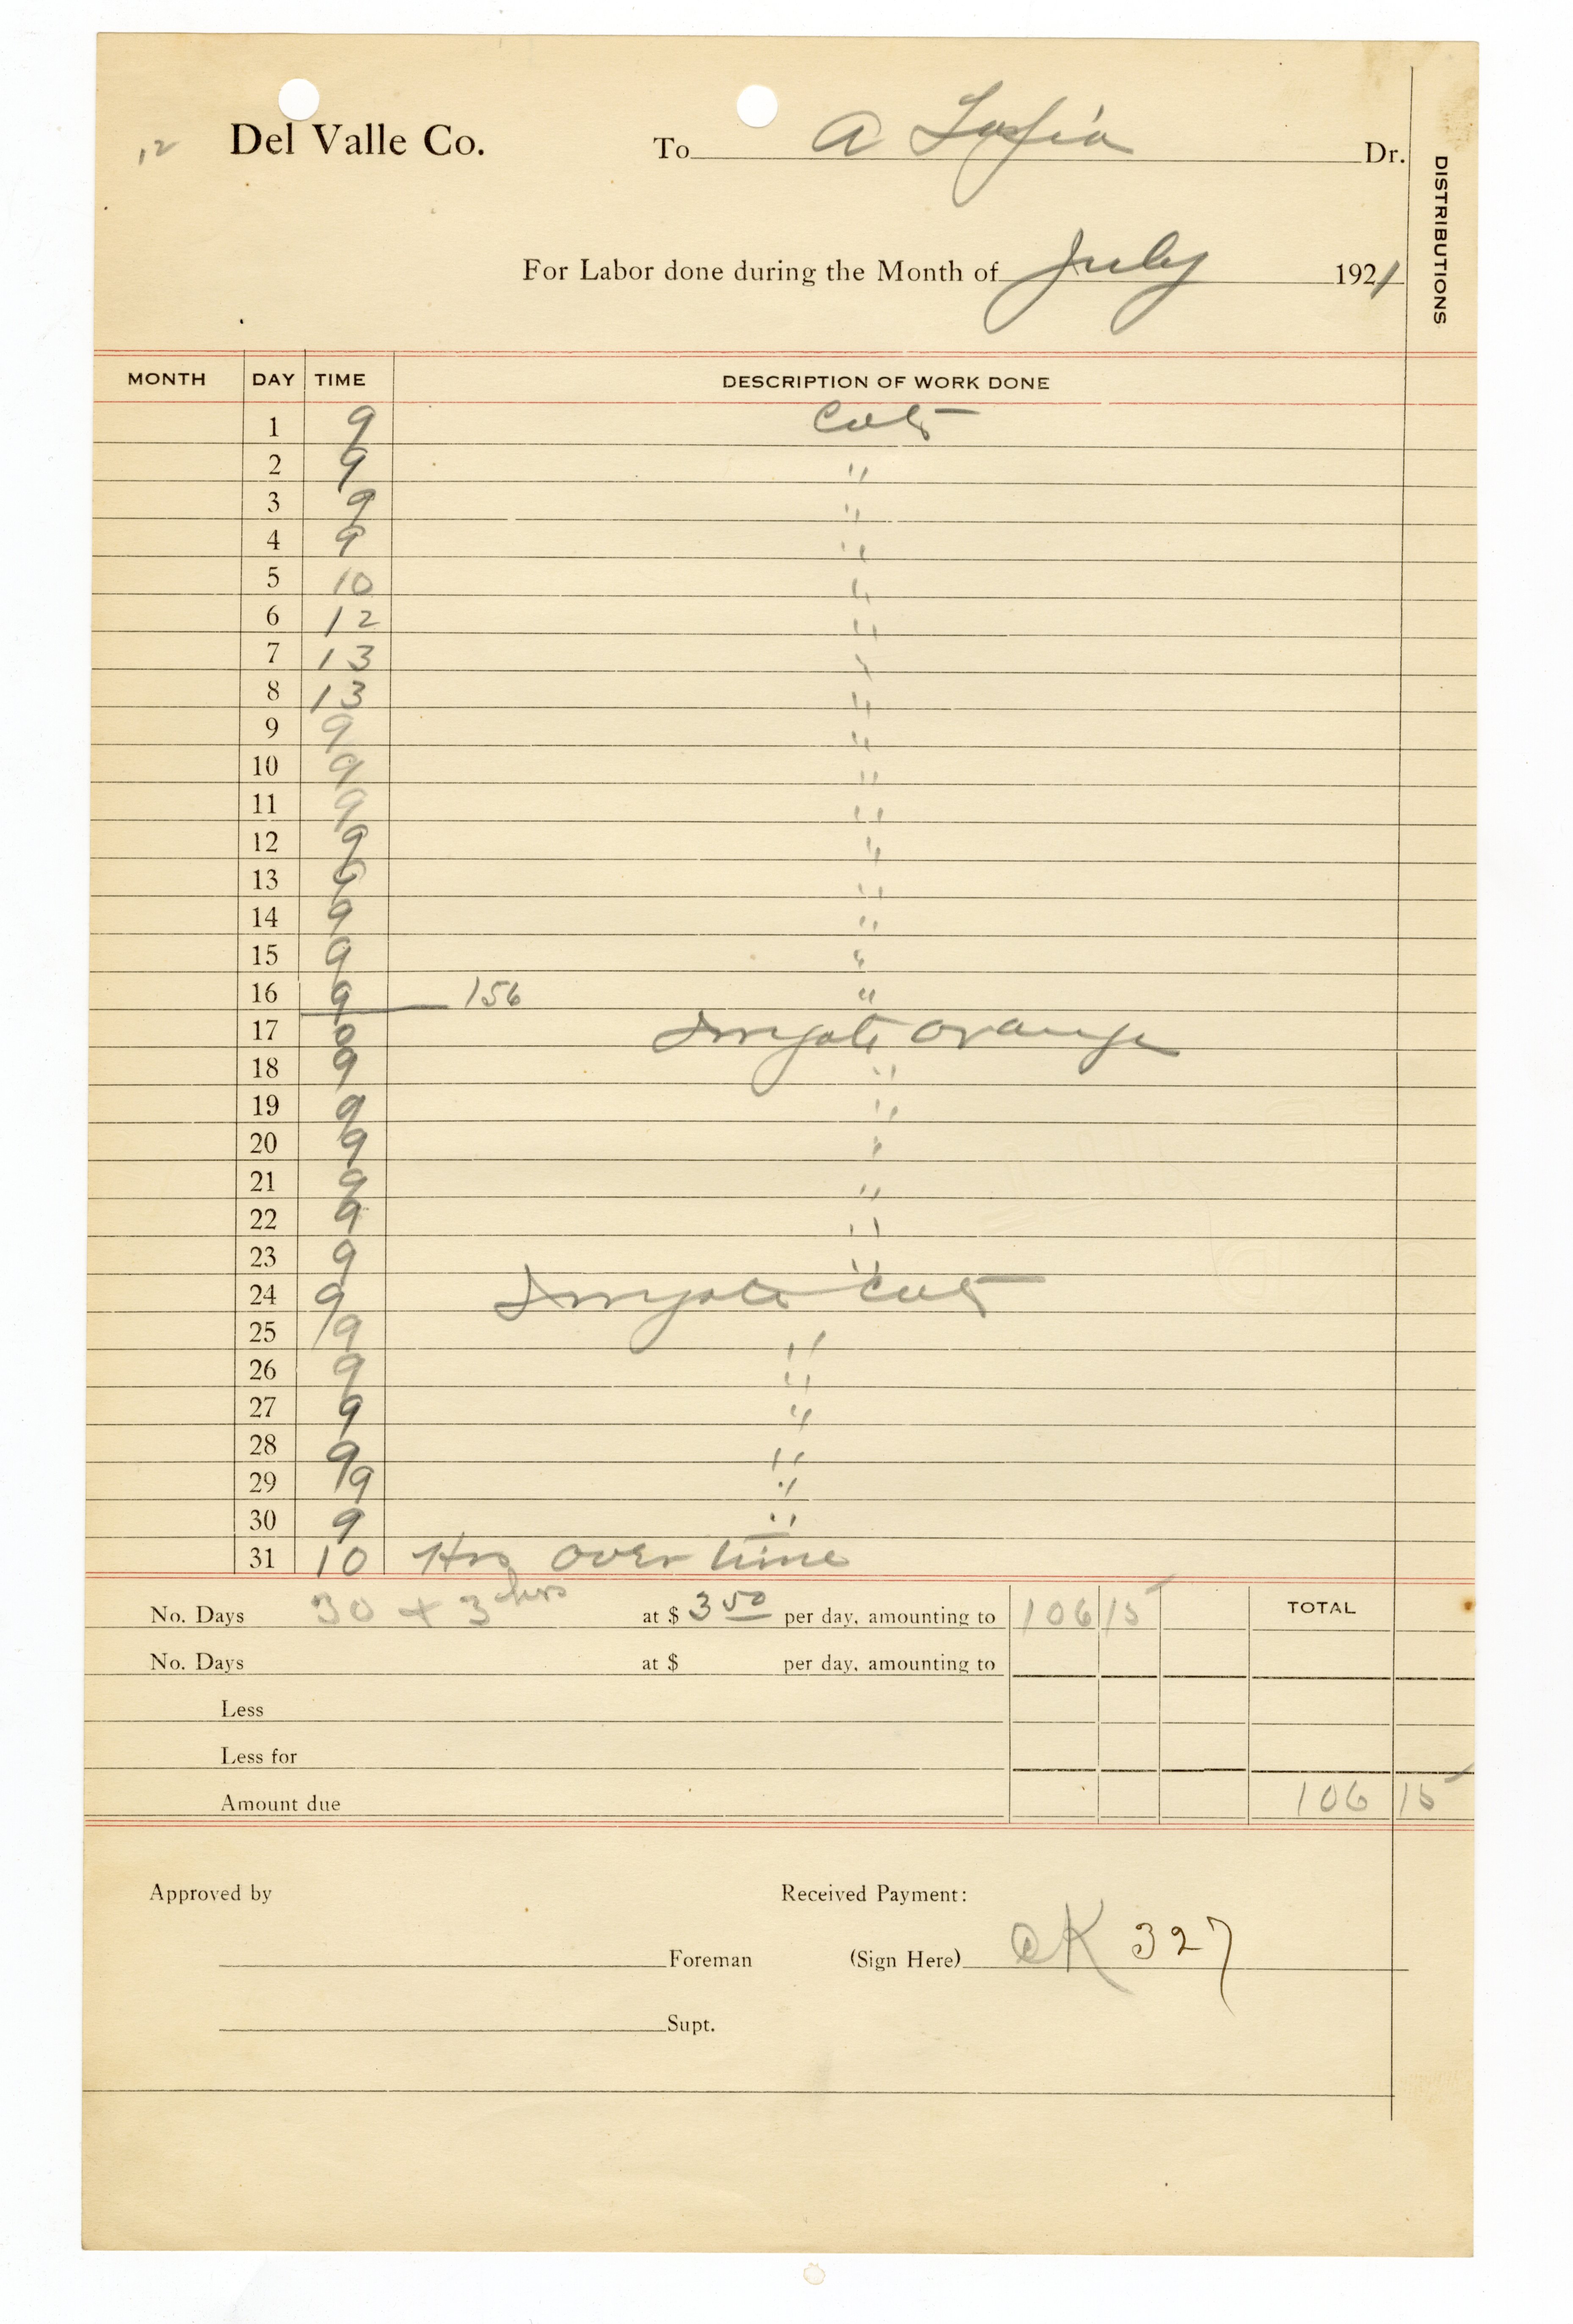 12 Del Valle Co. To A Dr.
DISTRIBUTIONS
For Labor done during the Month of July 1921
MONTH DAY TIME DESCRIPTION OF WORK DONE
1 9 Cult
2 9 "
3 9 "
4 9 "
5 10 "
6 12 "
7 13 "
8 13 "
9 9 "
10 9 "
11 9 "
12 9 "
13 9 "
14 9 "
15 9 "
16 9 156 "
17 Irrigate Orange
18 9 "
19 9 "
20 9 "
21 9 "
22 9 "
23 9 "
24 9 Irrigate Cult
25 9 "
26 9 "
27 9 "
28 9 "
29 9 "
30 9 "
31 10 Hrs over time
No. Days 30 + 3 hrs at $ 3 50 per day, amounting to 106 15 TOTAL
No. Days at $ per day, amounting to
Less
Less for
Amount due 106 15
Approved by Received Payment:
Foreman (Sign Here) 327
Supt.